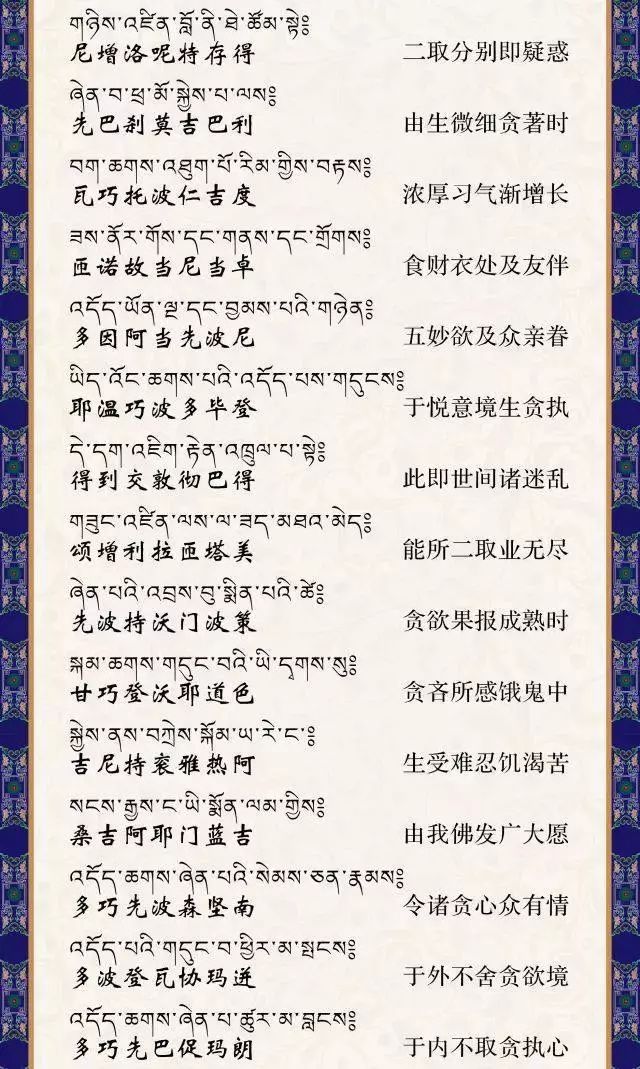 གཉིས་འཛིན་བློ་ནི་ཐེ་ཚོམ་སྟེ༔
尼增洛呢特存得 二取分别即疑惑
ཞེན་བ་ཕྲ་མོ་སྐྱེས་པ་ལས༔
先巴刹莫吉巴利 由生微细贪著时
བག་ཆགས་འཐུག་པོ་རིམ་གྱིས་བརྟས༔
瓦巧托波仁吉度 浓厚习气渐增长
ཟས་ནོར་གོས་དང་གནས་དང་གྲོགས༔
匝诺故当尼当卓 食财衣处及友伴
འདོད་ཡོན་ལྔ་དང་བྱམས་པའི་གཉེན༔
多因阿当先波尼 五妙欲及众亲眷
ཡིད་འོང་ཆགས་པའི་འདོད་པས་གདུངས༔
耶温巧波多毕登 于悦意境生贪执
དེ་དག་འཇིག་རྟེན་འཁྲུལ་པ་སྟེ༔
得到交敦彻巴得 此即世间诸迷乱
གཟུང་འཛིན་ལས་ལ་ཟད་མཐའ་མེད༔
颂增利拉匝塔美 能所二取业无尽
ཞེན་པའི་འབྲས་བུ་སྨིན་པའི་ཚེ༔
先波持沃门波策 贪欲果报成熟时
སྐམ་ཆགས་གདུང་བའི་ཡི་དྭགས་སུ༔
甘巧登沃耶道色 贪吝所感饿鬼中
སྐྱེས་ནས་བཀྲེས་སྐོམ་ཡ་རེ་ང་༔
吉尼持衮雅热阿 生受难忍饥渴苦
སངས་རྒྱས་ང་ཡི་སྨོན་ལམ་གྱིས༔
桑吉阿耶门蓝吉 由我佛发广大愿
འདོད་ཆགས་ཞེན་པའི་སེམས་ཅན་རྣམས༔
多巧先波森坚南 令诸贪心众有情
འདོད་པའི་གདུང་བ་ཕྱིར་མ་སྤངས༔
多波登瓦协玛迸 于外不舍贪欲境
འདོད་ཆགས་ཞེན་པ་ཚུར་མ་བླངས༔
多巧先巴促玛朗 于内不取贪执心